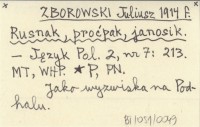 ZBOROWSKI Juliusz 1914 F.
Rusnak, proćpak, janosik.
— Język Pol. 2, nr 7: 213.
MT, WHP. ★P, PN.
Jako wyzwiska na Pod-
halu.